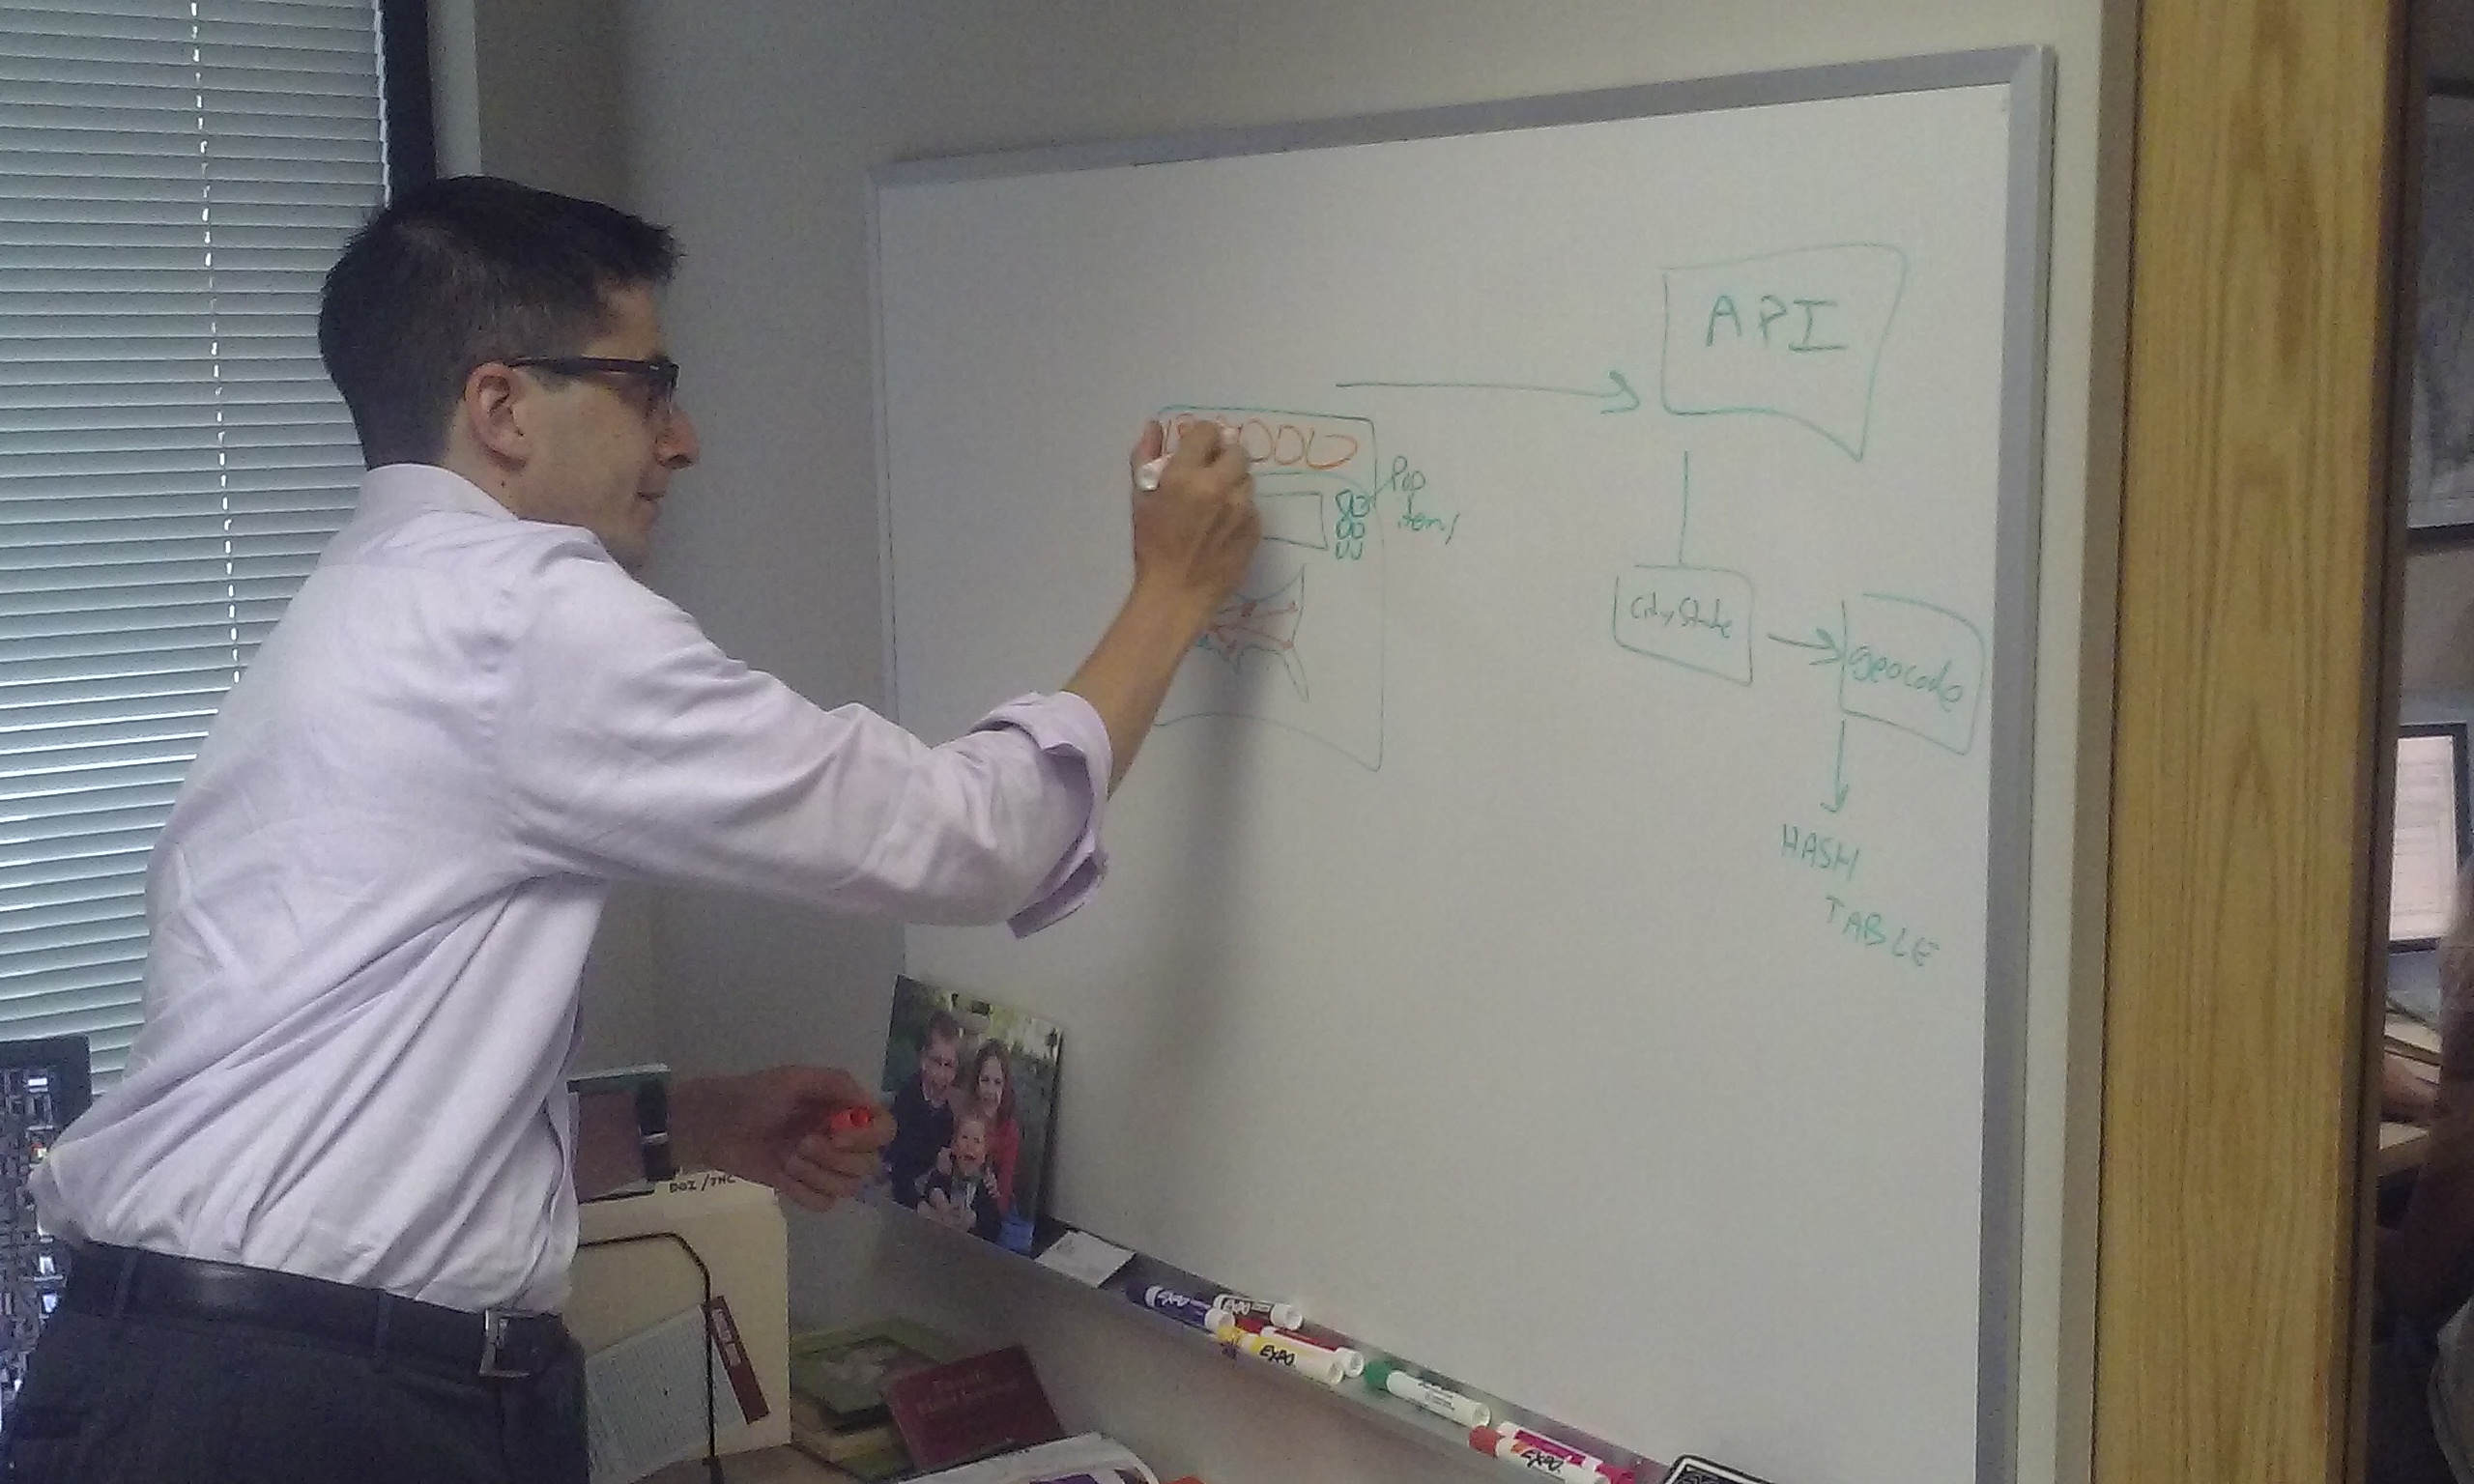 API
Pop
items
City, State
geocode
HASH
TABLE
DOI/JHC
EXPO
EXPO
EXPO
EXPO